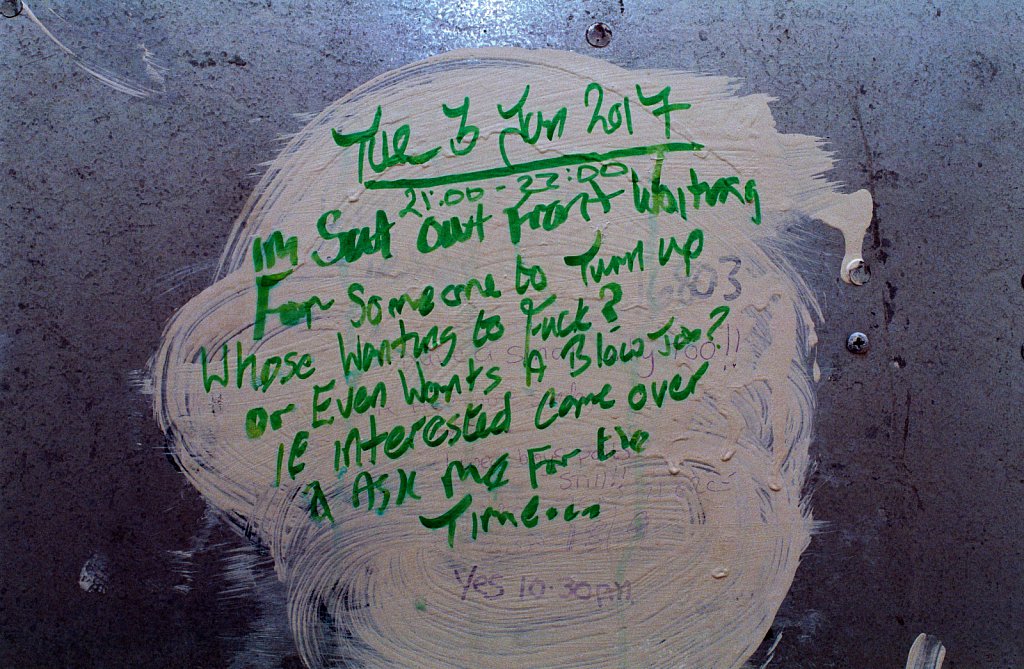 Tue 3 Jan 2017
21:00 - 22:00
im Sat out Front Waiting
For Someone to Turn up
6803
Whose Wanting to Fuck?
or Even Wants A Blow Job?
IF interested Come over
& ASk me For the
Time...
Yes 10.30pm